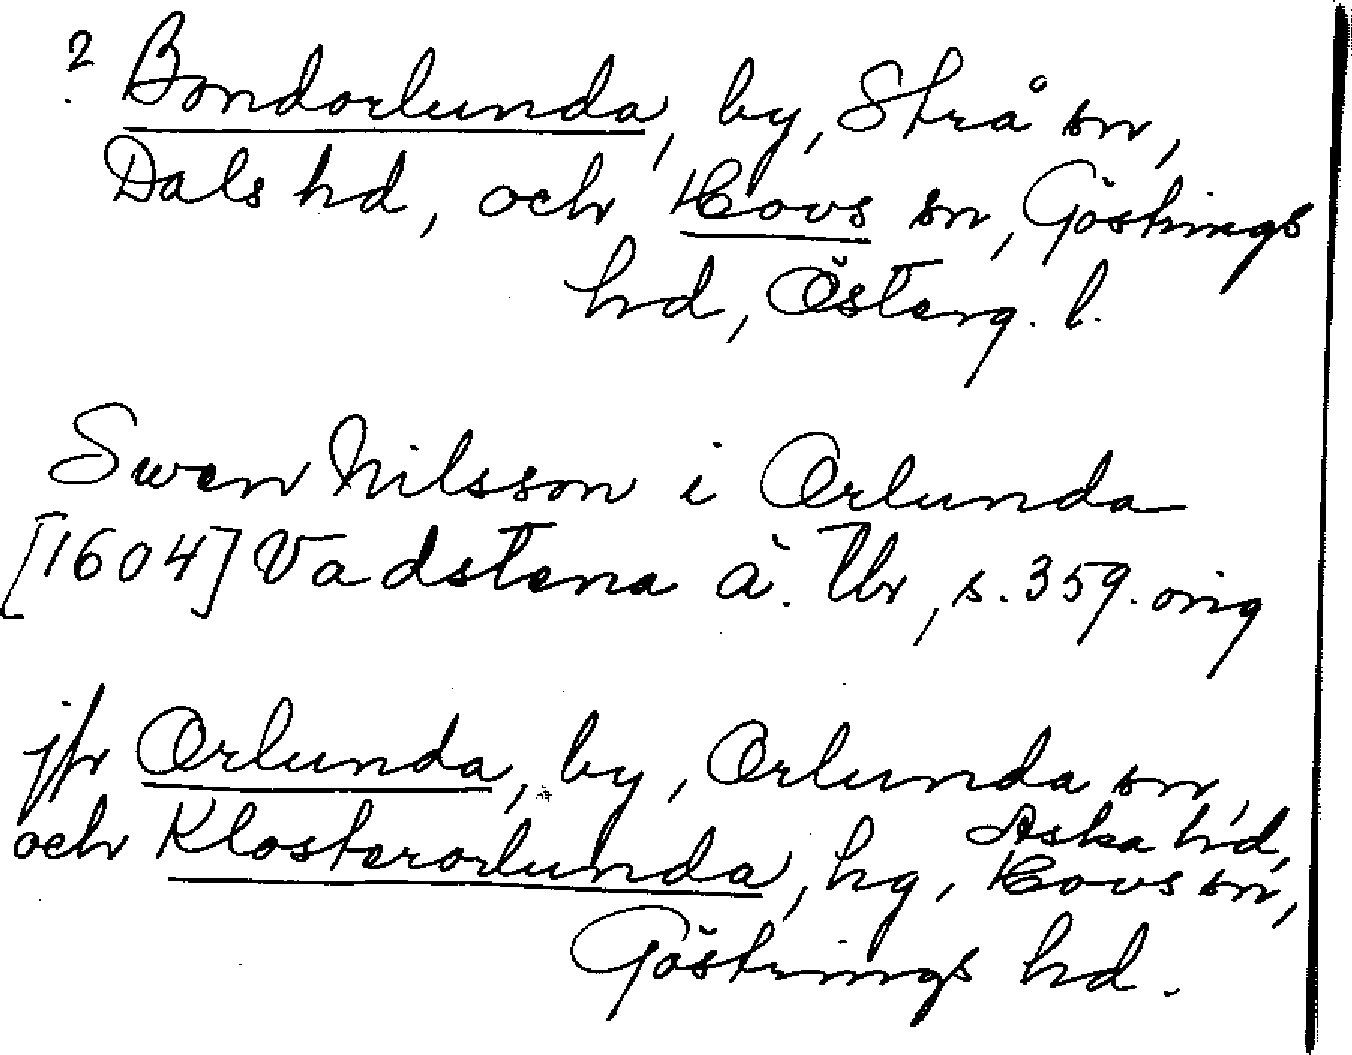 ? Bondorlunda, by, Strå sn,
Dals hd, och Hovs sn, Göstrings
hd, Österg. l.
Swen Nilsson i Orlunda
[1604] Vadstena ä. Tb, s. 359. orig
jfr Orlunda, by, Orlunda sn,
Aska hd,
och Klosterorlunda, hg, Hovs sn,
Göstrings hd.